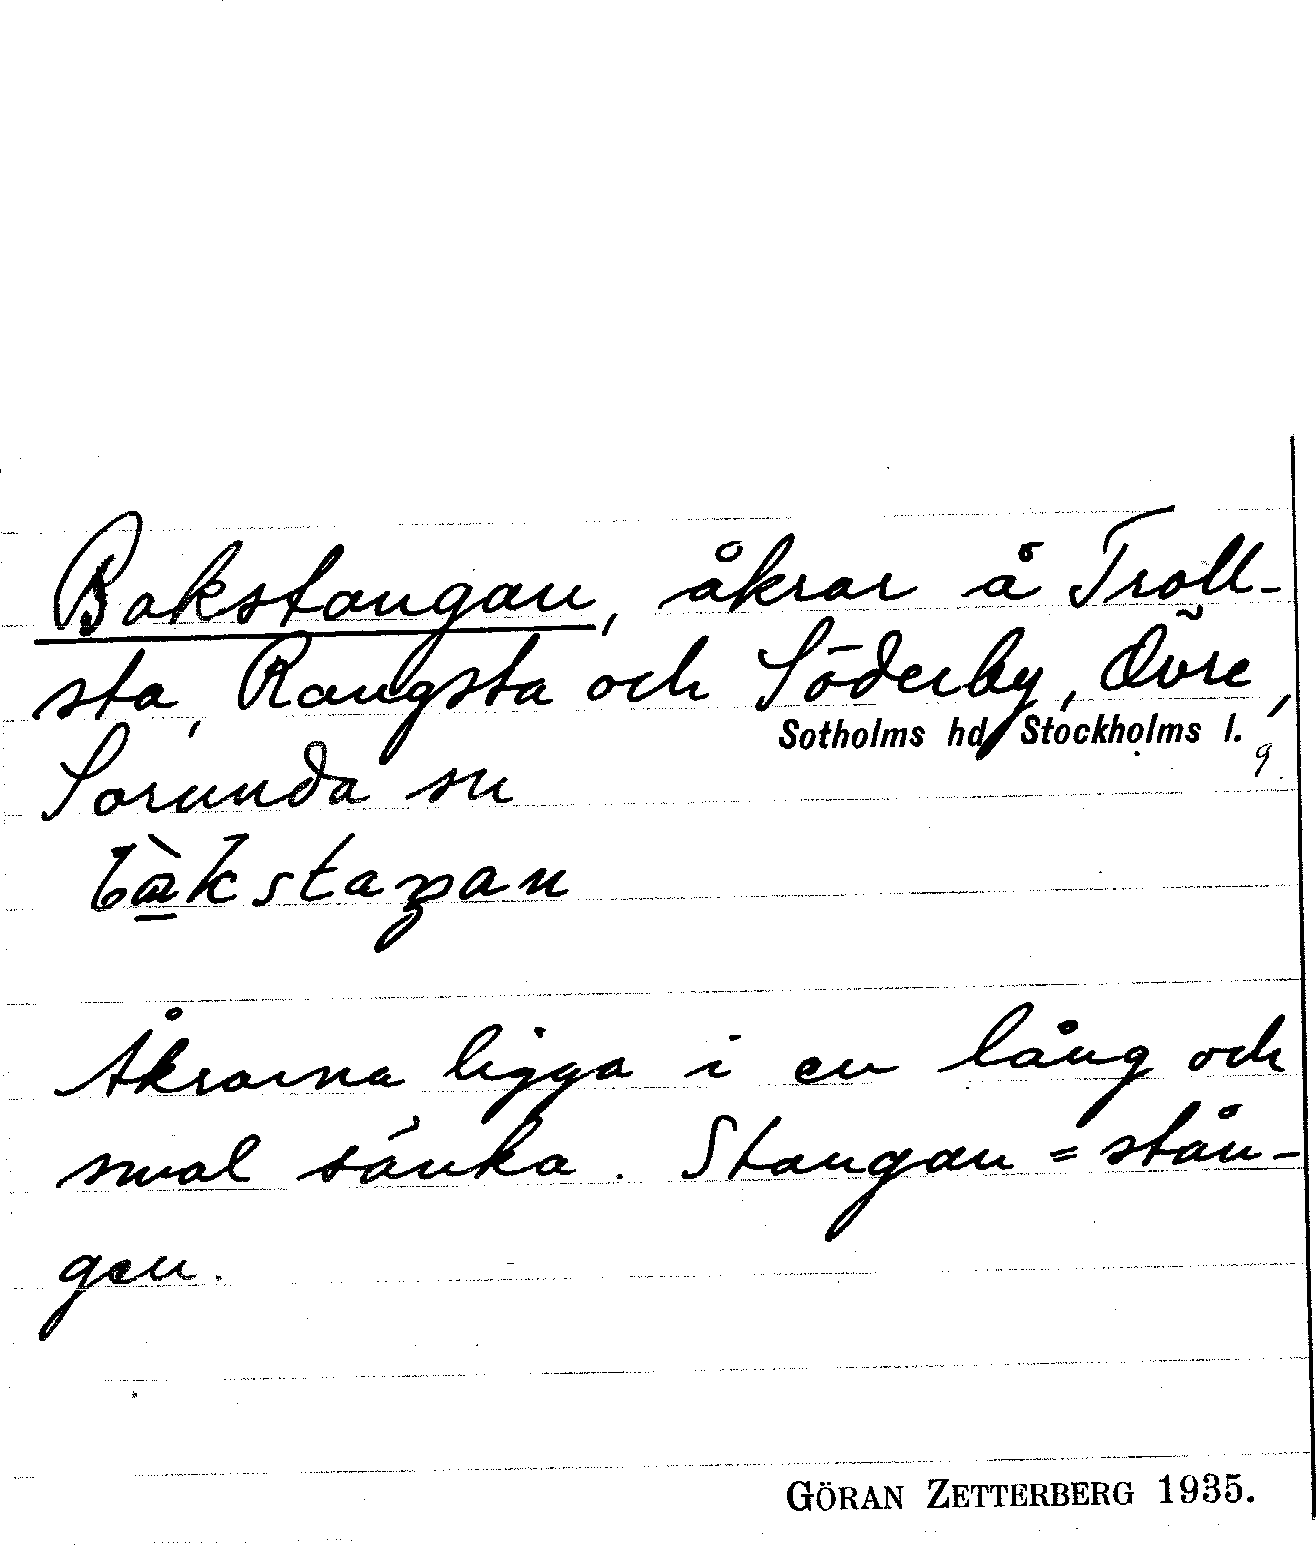 Bakstangan, åkrar å Troll-
sta, Rangsta och Söderby, Övre,
Sotholms hd, Stockholms l. 9
Sorunda sn
Åkrarna ligga i en lång och
smal sänka. Stangan = stån-
gen.
GÖRAN ZETTERBERG 1935.